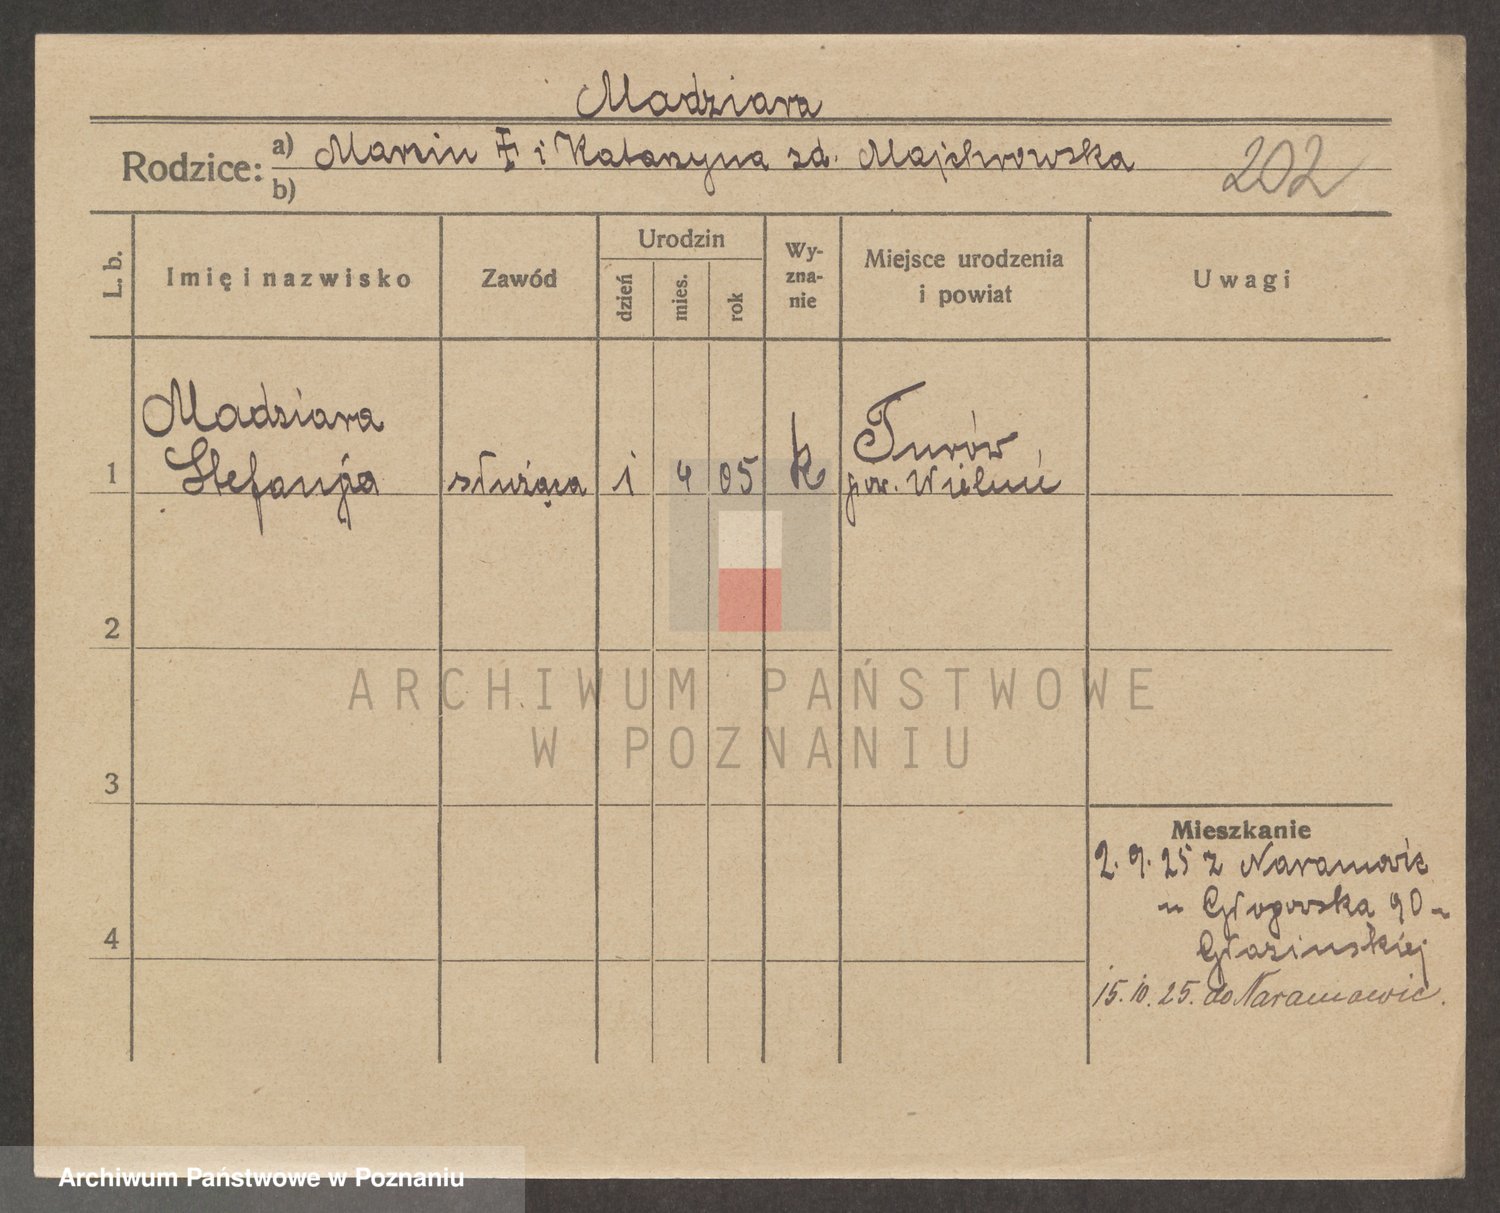 Madziara
Rodzice: a) Marcin ‡ i Katarzyna zd. Majchrowska
b)
202
L. b.
Imię i nazwisko
Zawód
Urodzin
dzień
mies.
rok
Wy-
zna-
nie
Miejsce urodzenia
i powiat
Uwagi
Madziara
1 Stefanja służąca 1 4 05 k Turów
pow. Wieluń
2
3
4
Mieszkanie
2. 9. 25 z Naramowic
u Głogowska 90 u
Głazinskiej
15. 10. 25. do Naramowic.
ARCHIWUM PAŃSTWOWE
W POZNANIU
Archiwum Państwowe w Poznaniu